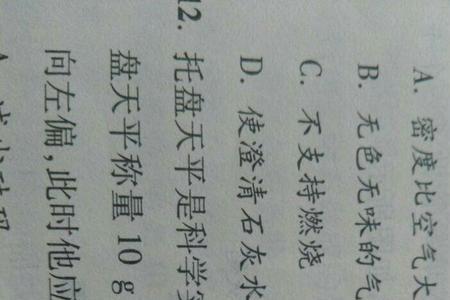 A. 密度比空气大
B. 无色无味的气
C. 不支持燃烧
D. 使澄清石灰水
12. 托盘天平是科学实
盘天平称量 10 g
向左偏,此时他应
A. 减少砝码